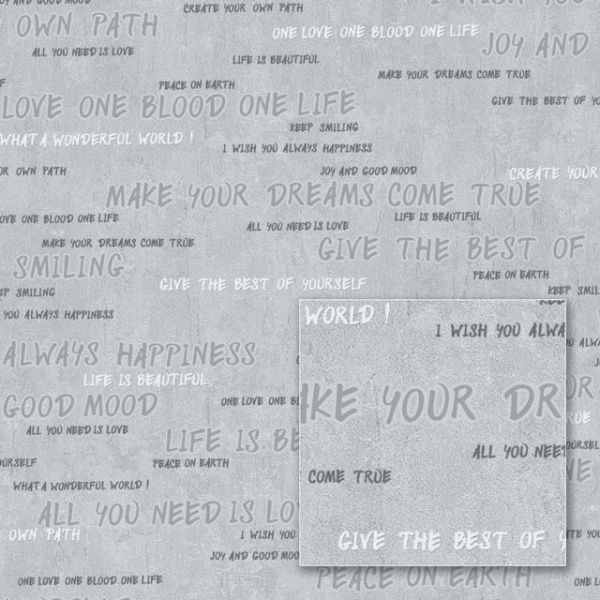 JOY AND GOOD MOOD
CREATE YOUR OWN PATH
OWN PATH
ONE LOVE ONE BLOOD ONE LIFE
JOY AND
ALL YOU NEED IS LOVE
LIFE IS BEAUTIFUL
MAKE YOUR DREAMS COME TRUE
PEACE ON EARTH
LOVE ONE BLOOD ONE LIFE
GIVE THE BEST OF YO
KEEP SMILING
WHAT A WONDERFUL WORLD !
I WISH YOU ALWAYS HAPPINESS
OUR OWN PATH
JOY AND GOOD MOOD
CREATE YOUR
MAKE YOUR DREAMS COME TRUE
LOVE ONE BLOOD ONE LIFE
LIFE IS BEAUTIFUL
ALL YOU NEED IS LOVE
MAKE YOUR DREAMS COME TRUE
GIVE THE BEST OF
SMILING
PEACE ON EARTH
GIVE THE BEST OF YOURSELF
EP SMILING
KEEP SMILING
YOU ALWAYS HAPPINESS
WORLD !
I WISH YOU ALWA
ALWAYS HAPPINESS
LIFE IS BEAUTIFUL
AKE YOUR DR
GOOD MOOD
ONE LOVE ONE BL
ALL YOU NEED IS LOVE
LIFE IS BE
ALL YOU NEE
OURSELF
PEACE ON EARTH
COME TRUE
WHAT A WONDERFUL WORLD !
ALL YOU NEED IS LO
OWN PATH
I WISH YOU
GIVE THE BEST OF Y
JOY AND GOOD MOO
PEACE ON EARTH
ONE LOVE ONE BLOOD ONE LIFE